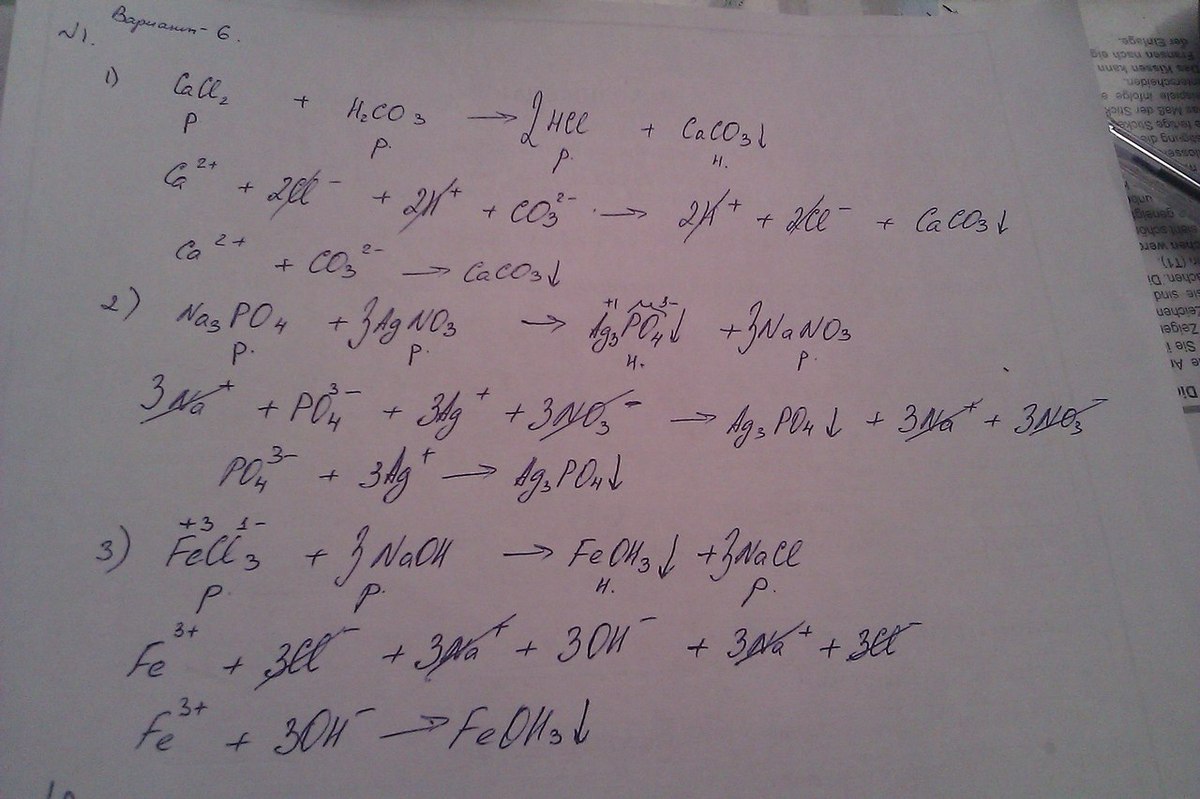 Вариант-6.
№1.
1) CaCl₂ + H₂CO₃ → 2HCl + CaCO₃↓
р р. р. н.
Ca²⁺ + 2Cl⁻ + 2H⁺ + CO₃²⁻ → 2H⁺ + 2Cl⁻ + CaCO₃↓
Ca²⁺ + CO₃²⁻ → CaCO₃↓
2) Na₃PO₄ + 3AgNO₃ → Ag₃PO₄↓ + 3NaNO₃
+1 3-
р. р. н. р.
3Na⁺ + PO₄³⁻ + 3Ag⁺ + 3NO₃⁻ → Ag₃PO₄↓ + 3Na⁺ + 3NO₃⁻
PO₄³⁻ + 3Ag⁺ → Ag₃PO₄↓
+3 1-
3) FeCl₃ + 3NaOH → FeOH₃↓ + 3NaCl
р. р. н. р.
Fe³⁺ + 3Cl⁻ + 3Na⁺ + 3OH⁻ + 3Na⁺ + 3Cl⁻
Fe³⁺ + 3OH⁻ → FeOH₃↓
der Einlage.
Fransen nach
Das Kissen kann